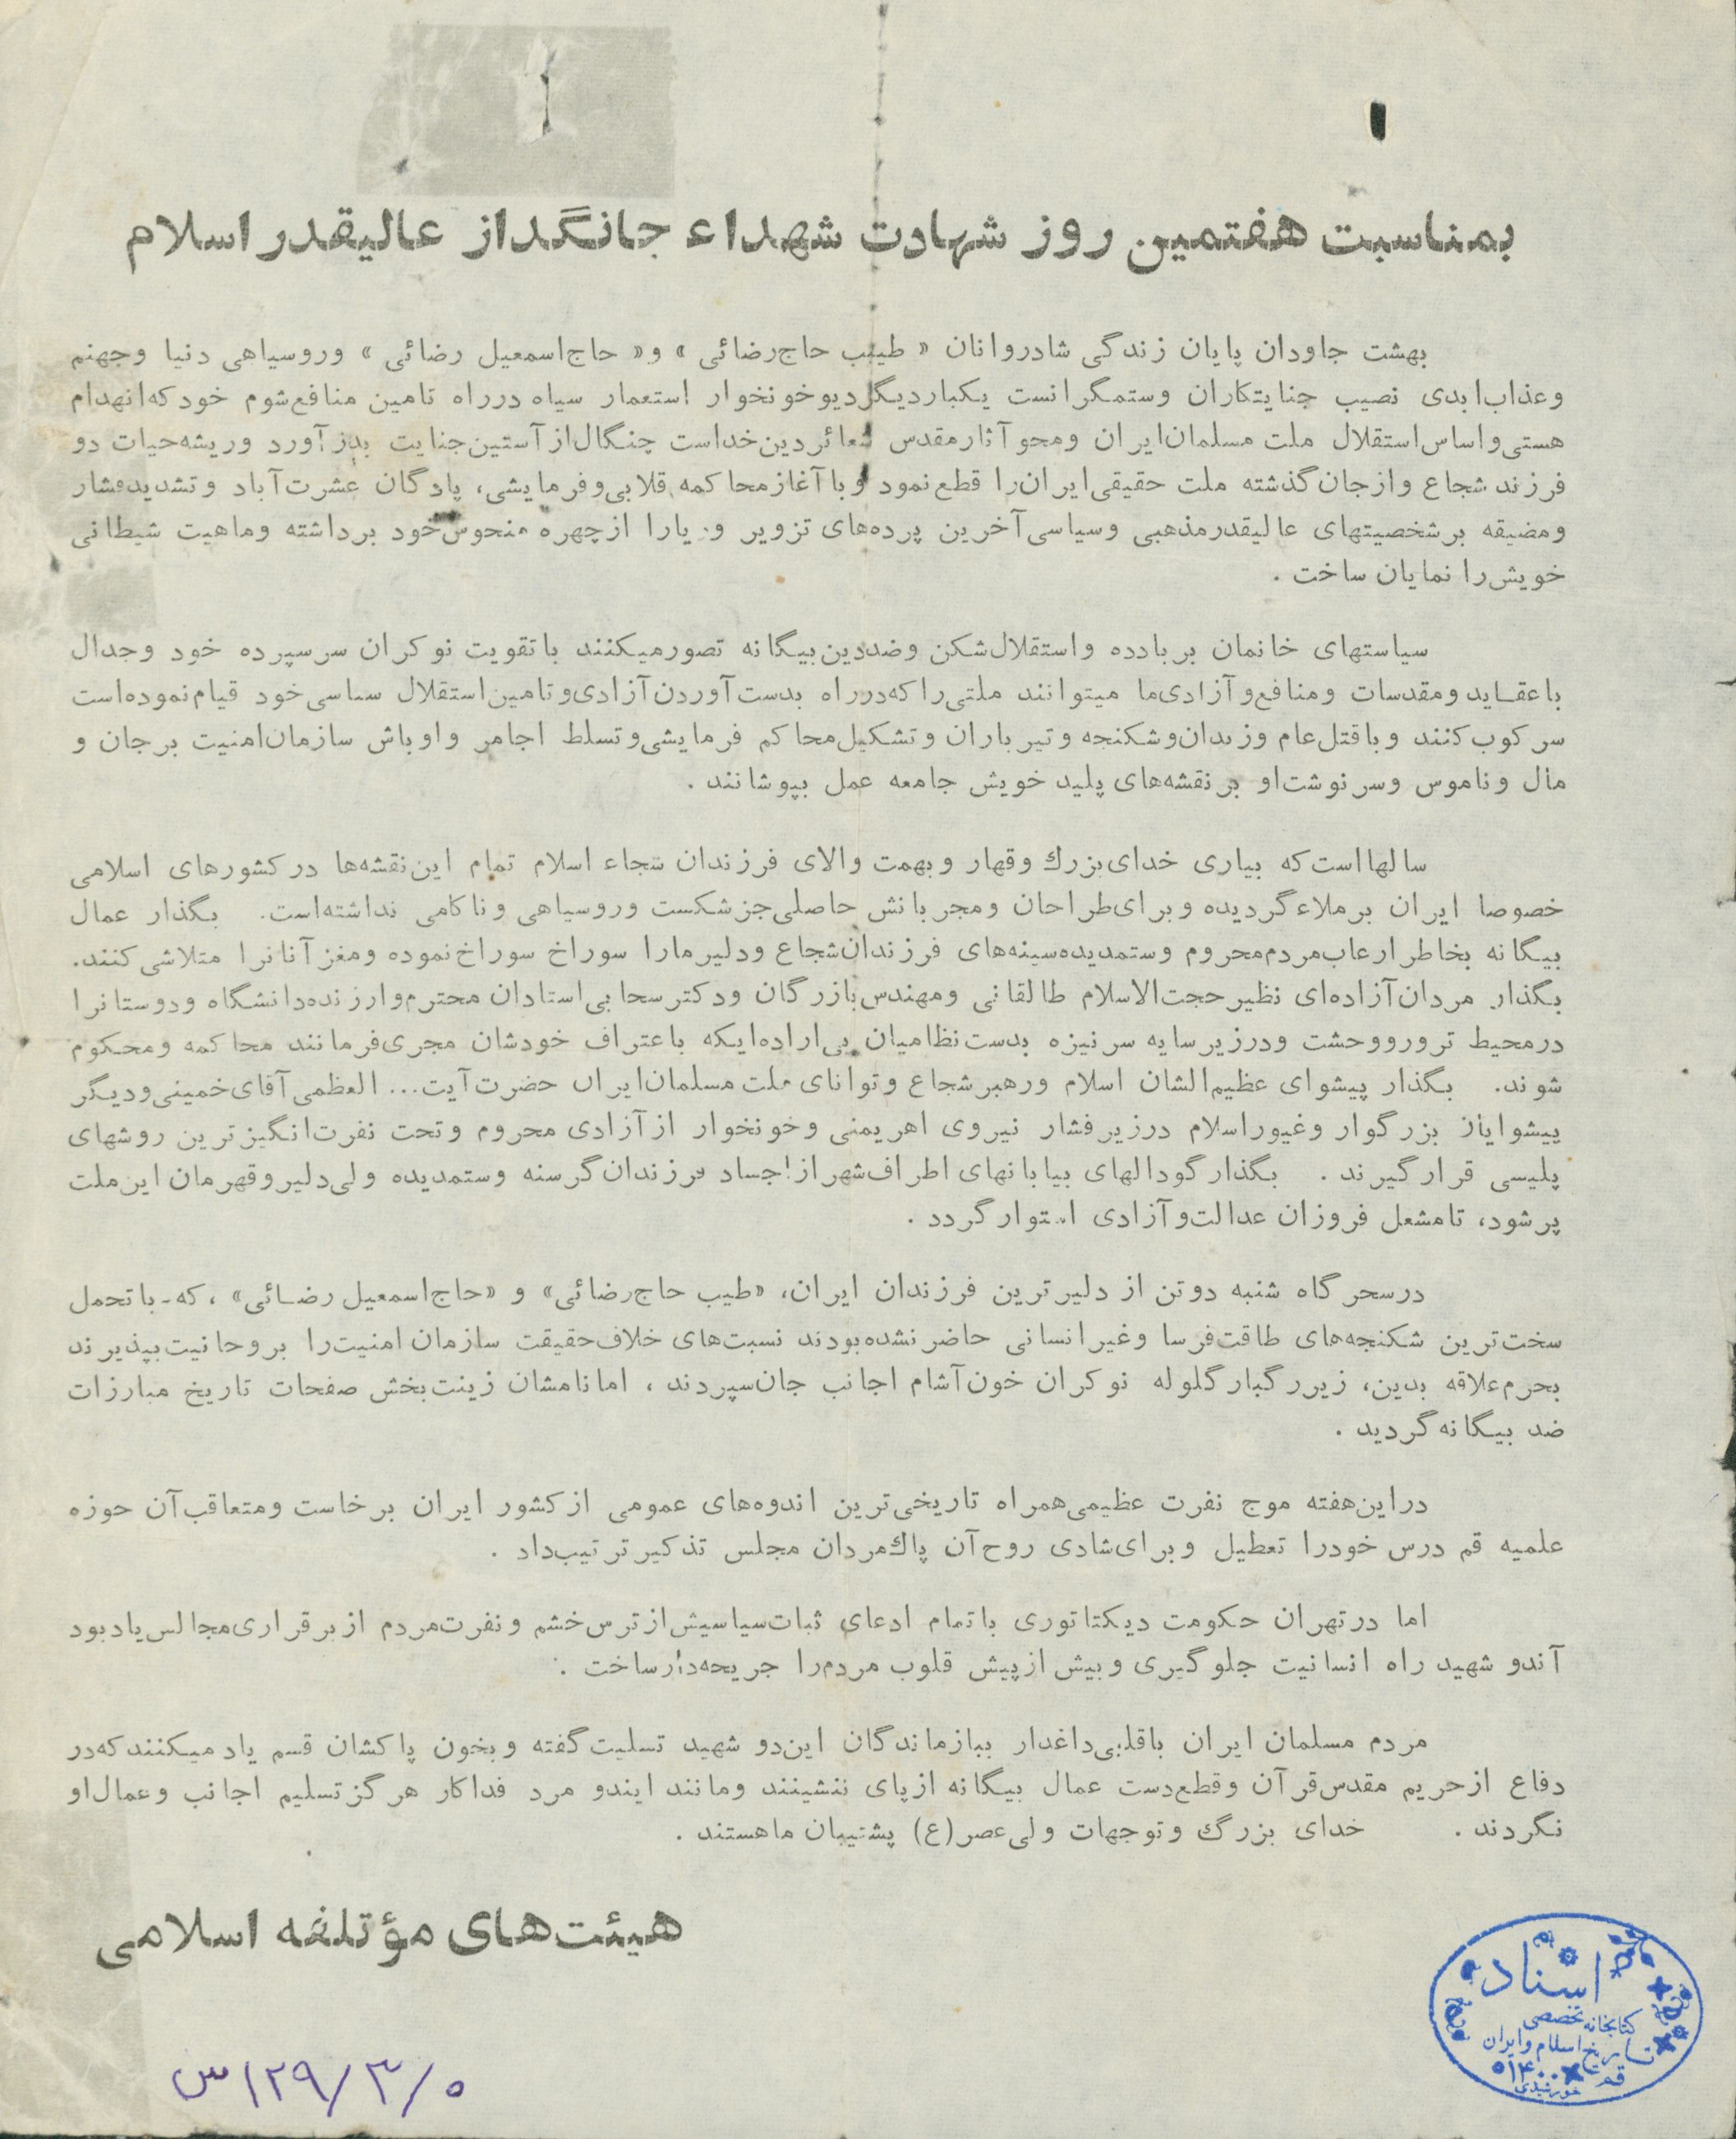 بمناسبت هفتمین روز شهادت شهداء جانگداز عالیقدر اسلام
بهشت جاودان پایان زندگی شادروانان « طیب حاج‌رضائی » و« حاج‌اسمعیل رضائی » وروسیاهی دنیا وجهنم
وعذاب‌ابدی نصیب جنایتکاران وستمگرانست یکباردیگردیوخونخوار استعمار سیاه درراه تامین منافع‌شوم خودکه‌انهدام
هستی‌واساس‌استقلال ملت مسلمان‌ایران ومحوآثارمقدس شعائردین‌خداست چنگال‌ازآستین‌جنایت بدرآورد وریشه‌حیات دو
فرزند شجاع وازجان‌گذشته ملت حقیقی‌ایران‌را قطع‌نمود وباآغازمحاکمه قلابی‌وفرمایشی، پادگان عشرت‌آباد وتشدیدفشار
ومضیقه برشخصیتهای عالیقدرمذهبی وسیاسی‌آخرین پرده‌های تزویر وریارا ازچهره منحوس‌خود برداشته وماهیت شیطانی
خویش‌را نمایان ساخت .
سیاستهای خانمان بربادده واستقلال‌شکن وضددین‌بیگانه تصورمیکنند باتقویت نوکران سرسپرده خود وجدال
باعقاید ومقدسات ومنافع‌وآزادی‌ما میتوانند ملتی‌راکه‌درراه بدست‌آوردن‌آزادی‌وتامین‌استقلال سیاسی‌خود قیام‌نموده‌است
سرکوب‌کنند وباقتل‌عام وزندان‌وشکنجه وتیرباران وتشکیل‌محاکم فرمایشی‌وتسلط اجامر واوباش سازمان‌امنیت برجان و
مال وناموس وسرنوشت‌او برنقشه‌های پلید خویش جامعه عمل بپوشانند .
سالهااست‌که بیاری خدای‌بزرك وقهار وبهمت والای فرزندان شجاء اسلام تمام این‌نقشه‌ها درکشورهای اسلامی
خصوصا ایران برملاءگردیده وبرای‌طراحان ومجریانش حاصلی‌جزشکست وروسیاهی وناکامی نداشته‌است. بگذار عمال
بیگانه بخاطرارعاب‌مردم‌محروم وستمدیده‌سینه‌های فرزندان‌شجاع ودلیرمارا سوراخ سوراخ‌نموده ومغزآنانرا متلاشی‌کنند.
بگذار مردان‌آزاده‌ای نظیرحجت‌الاسلام طالقانی ومهندس‌بازرگان ودکترسحابی‌استادان محترم‌وارزنده‌دانشگاه ودوستانرا
درمحیط ترورووحشت ودرزیرسایه سرنیزه بدست‌نظامیان بی‌اراده‌ایکه باعتراف خودشان مجری‌فرمانند محاکمه ومحکوم
شوند. بگذار پیشوای عظیم‌الشان اسلام ورهبرشجاع وتوانای ملت مسلمان‌ایران حضرت‌آیت... العظمی‌آقای‌خمینی‌ودیگر
پیشوایان بزرگوار وغیوراسلام درزیرفشار نیروی اهریمنی وخونخوار ازآزادی محروم وتحت نفرت‌انگیزترین روشهای
پلیسی قرارگیرند . بگذارگودالهای بیابانهای اطراف‌شهرازاجساد فرزندان‌گرسنه وستمدیده ولی‌دلیروقهرمان این‌ملت
پرشود، تامشعل فروزان عدالت‌وآزادی استوارگردد .
درسحرگاه شنبه دوتن از دلیرترین فرزندان ایران، «طیب حاج‌رضائی» و «حاج‌اسمعیل رضائی» ،که‌باتحمل
سخت‌ترین شکنجه‌های طاقت‌فرسا وغیرانسانی حاضرنشده‌بودند نسبت‌های خلاف‌حقیقت سازمان‌امنیت‌را بروحانیت‌بپذیرند
بجرم‌علاقه بدین، زیررگبارگلوله نوکران خون‌آشام اجانب جان‌سپردند ، امانامشان زینت‌بخش صفحات تاریخ مبارزات
ضد بیگانه‌گردید .
دراین‌هفته موج نفرت عظیمی‌همراه تاریخی‌ترین اندوه‌های عمومی ازکشور ایران برخاست ومتعاقب‌آن حوزه
علمیه قم درس خودرا تعطیل وبرای‌شادی روح‌آن پاك‌مردان مجلس تذکیرترتیب‌داد .
اما درتهران حکومت دیکتاتوری باتمام ادعای ثبات‌سیاسیش‌ازترس‌خشم ونفرت‌مردم ازبرقراری‌مجالس‌یادبود
آندو شهید راه انسانیت جلوگیری وبیش‌ازپیش قلوب مردم‌را جریحه‌دارساخت .
مردم مسلمان ایران باقلبی‌داغدار ببازماندگان این‌دو شهید تسلیت‌گفته وبخون پاکشان قسم یادمیکنندکه‌در
دفاع ازحریم مقدس‌قرآن وقطع‌دست عمال بیگانه ازپای ننشینند ومانند ایندو مرد فداکار هرگزتسلیم اجانب وعمال‌او
نگردند . خدای بزرگ وتوجهات ولی‌عصر(ع) پشتیبان ماهستند .
هیئت‌های مؤتلفه اسلامی
اسناد
کتابخانه تخصصی
تاریخ اسلام و ایران
قم
۱۴۰۰
خورشیدی
۱۲۹/۳/۵س